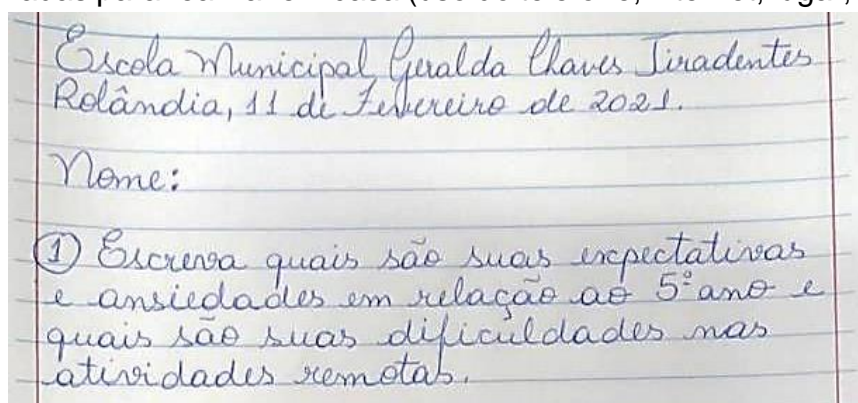 Escola Municipal Geralda Chaves Tiradentes
Rolândia, 11 de Fevereiro de 2021.
Nome:
① Escreva quais são suas expectativas
e ansiedades em relação ao 5º ano e
quais são suas dificuldades nas
atividades remotas.